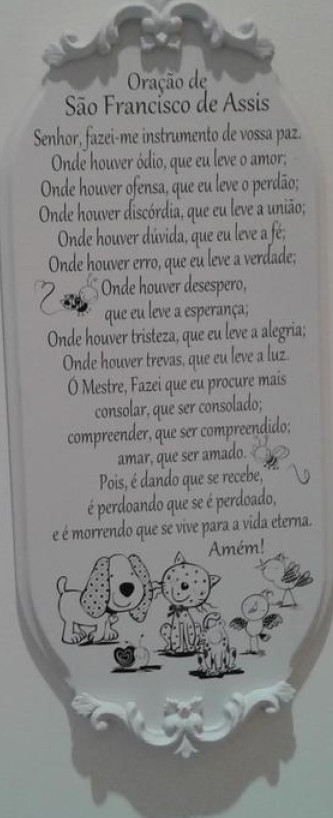 Oração de
São Francisco de Assis
Senhor, fazei-me instrumento de vossa paz.
Onde houver ódio, que eu leve o amor;
Onde houver ofensa, que eu leve o perdão;
Onde houver discórdia, que eu leve a união;
Onde houver dúvida, que eu leve a fé;
Onde houver erro, que eu leve a verdade;
Onde houver desespero,
que eu leve a esperança;
Onde houver tristeza, que eu leve a alegria;
Onde houver trevas, que eu leve a luz.
Ó Mestre, Fazei que eu procure mais
consolar, que ser consolado;
compreender, que ser compreendido;
amar, que ser amado.
Pois, é dando que se recebe,
é perdoando que se é perdoado,
e é morrendo que se vive para a vida eterna.
Amém!